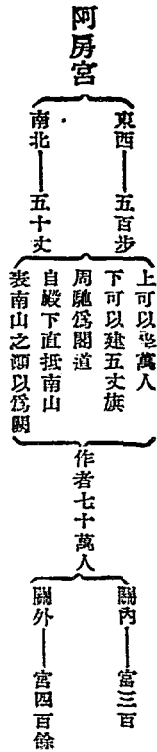 阿房宮
東西——五百步
南北——五十丈
上可以坐萬人
下可以建五丈旗
周馳爲閣道
自殿下直抵南山
表南山之顚以爲闕
作者七十萬人
關內——宮三百
關外——宮四百餘